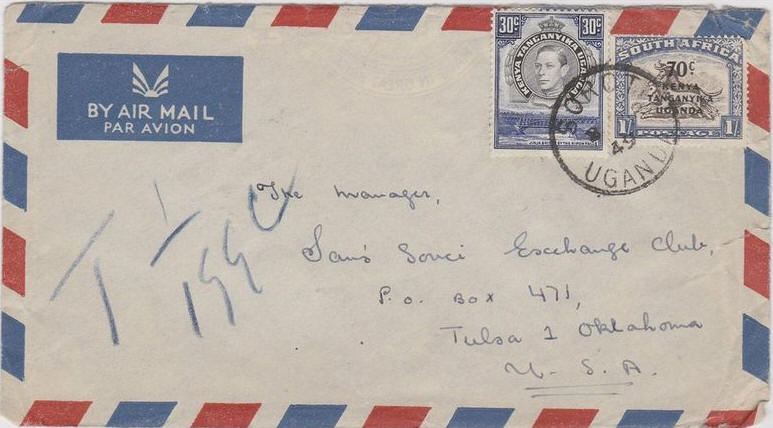 BY AIR MAIL
PAR AVION
30c 30c
KENYA TANGANYIKA UGANDA
SOUTH AFRICA
70c
KENYA
TANGANYIKA
UGANDA
1/- POSTAGE 1/-
SOROTI
45
UGANDA
T 1
The Manager,
Sans Souci Exchange Club,
P.O. Box 471,
Tulsa 1 Oklahoma
U.S.A.